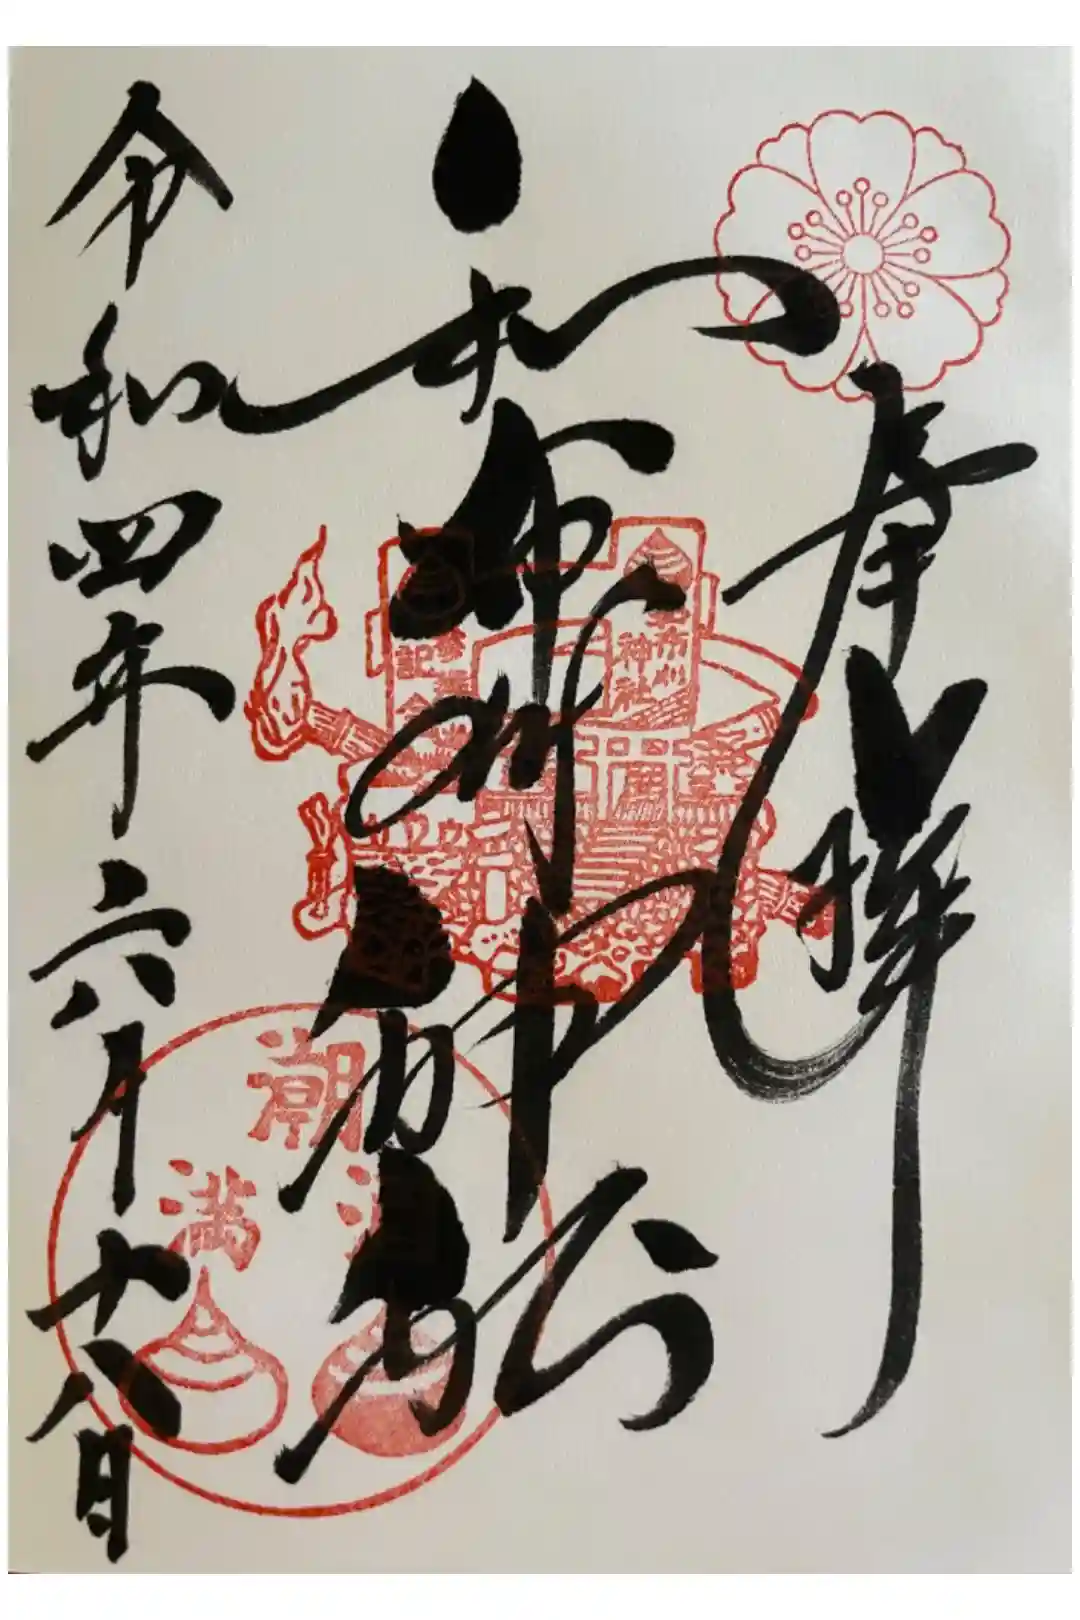 奉拝
和布刈神社
令和四年六月十八日
和布刈
神社
参拝
記念
潮
満